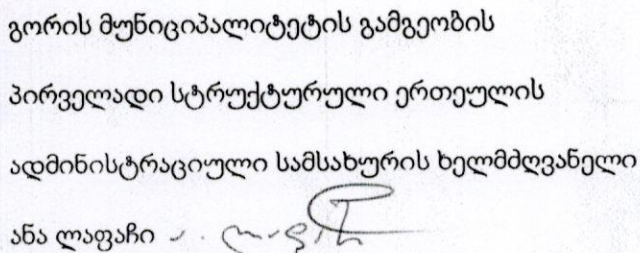 გორის მუნიციპალიტეტის გამგეობის
პირველადი სტრუქტურული ერთეულის
ადმინისტრაციული სამსახურის ხელმძღვანელი
ანა ლაფაჩი